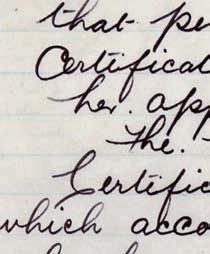 that pe
Certificat
her. app
The.
Certific
which acco